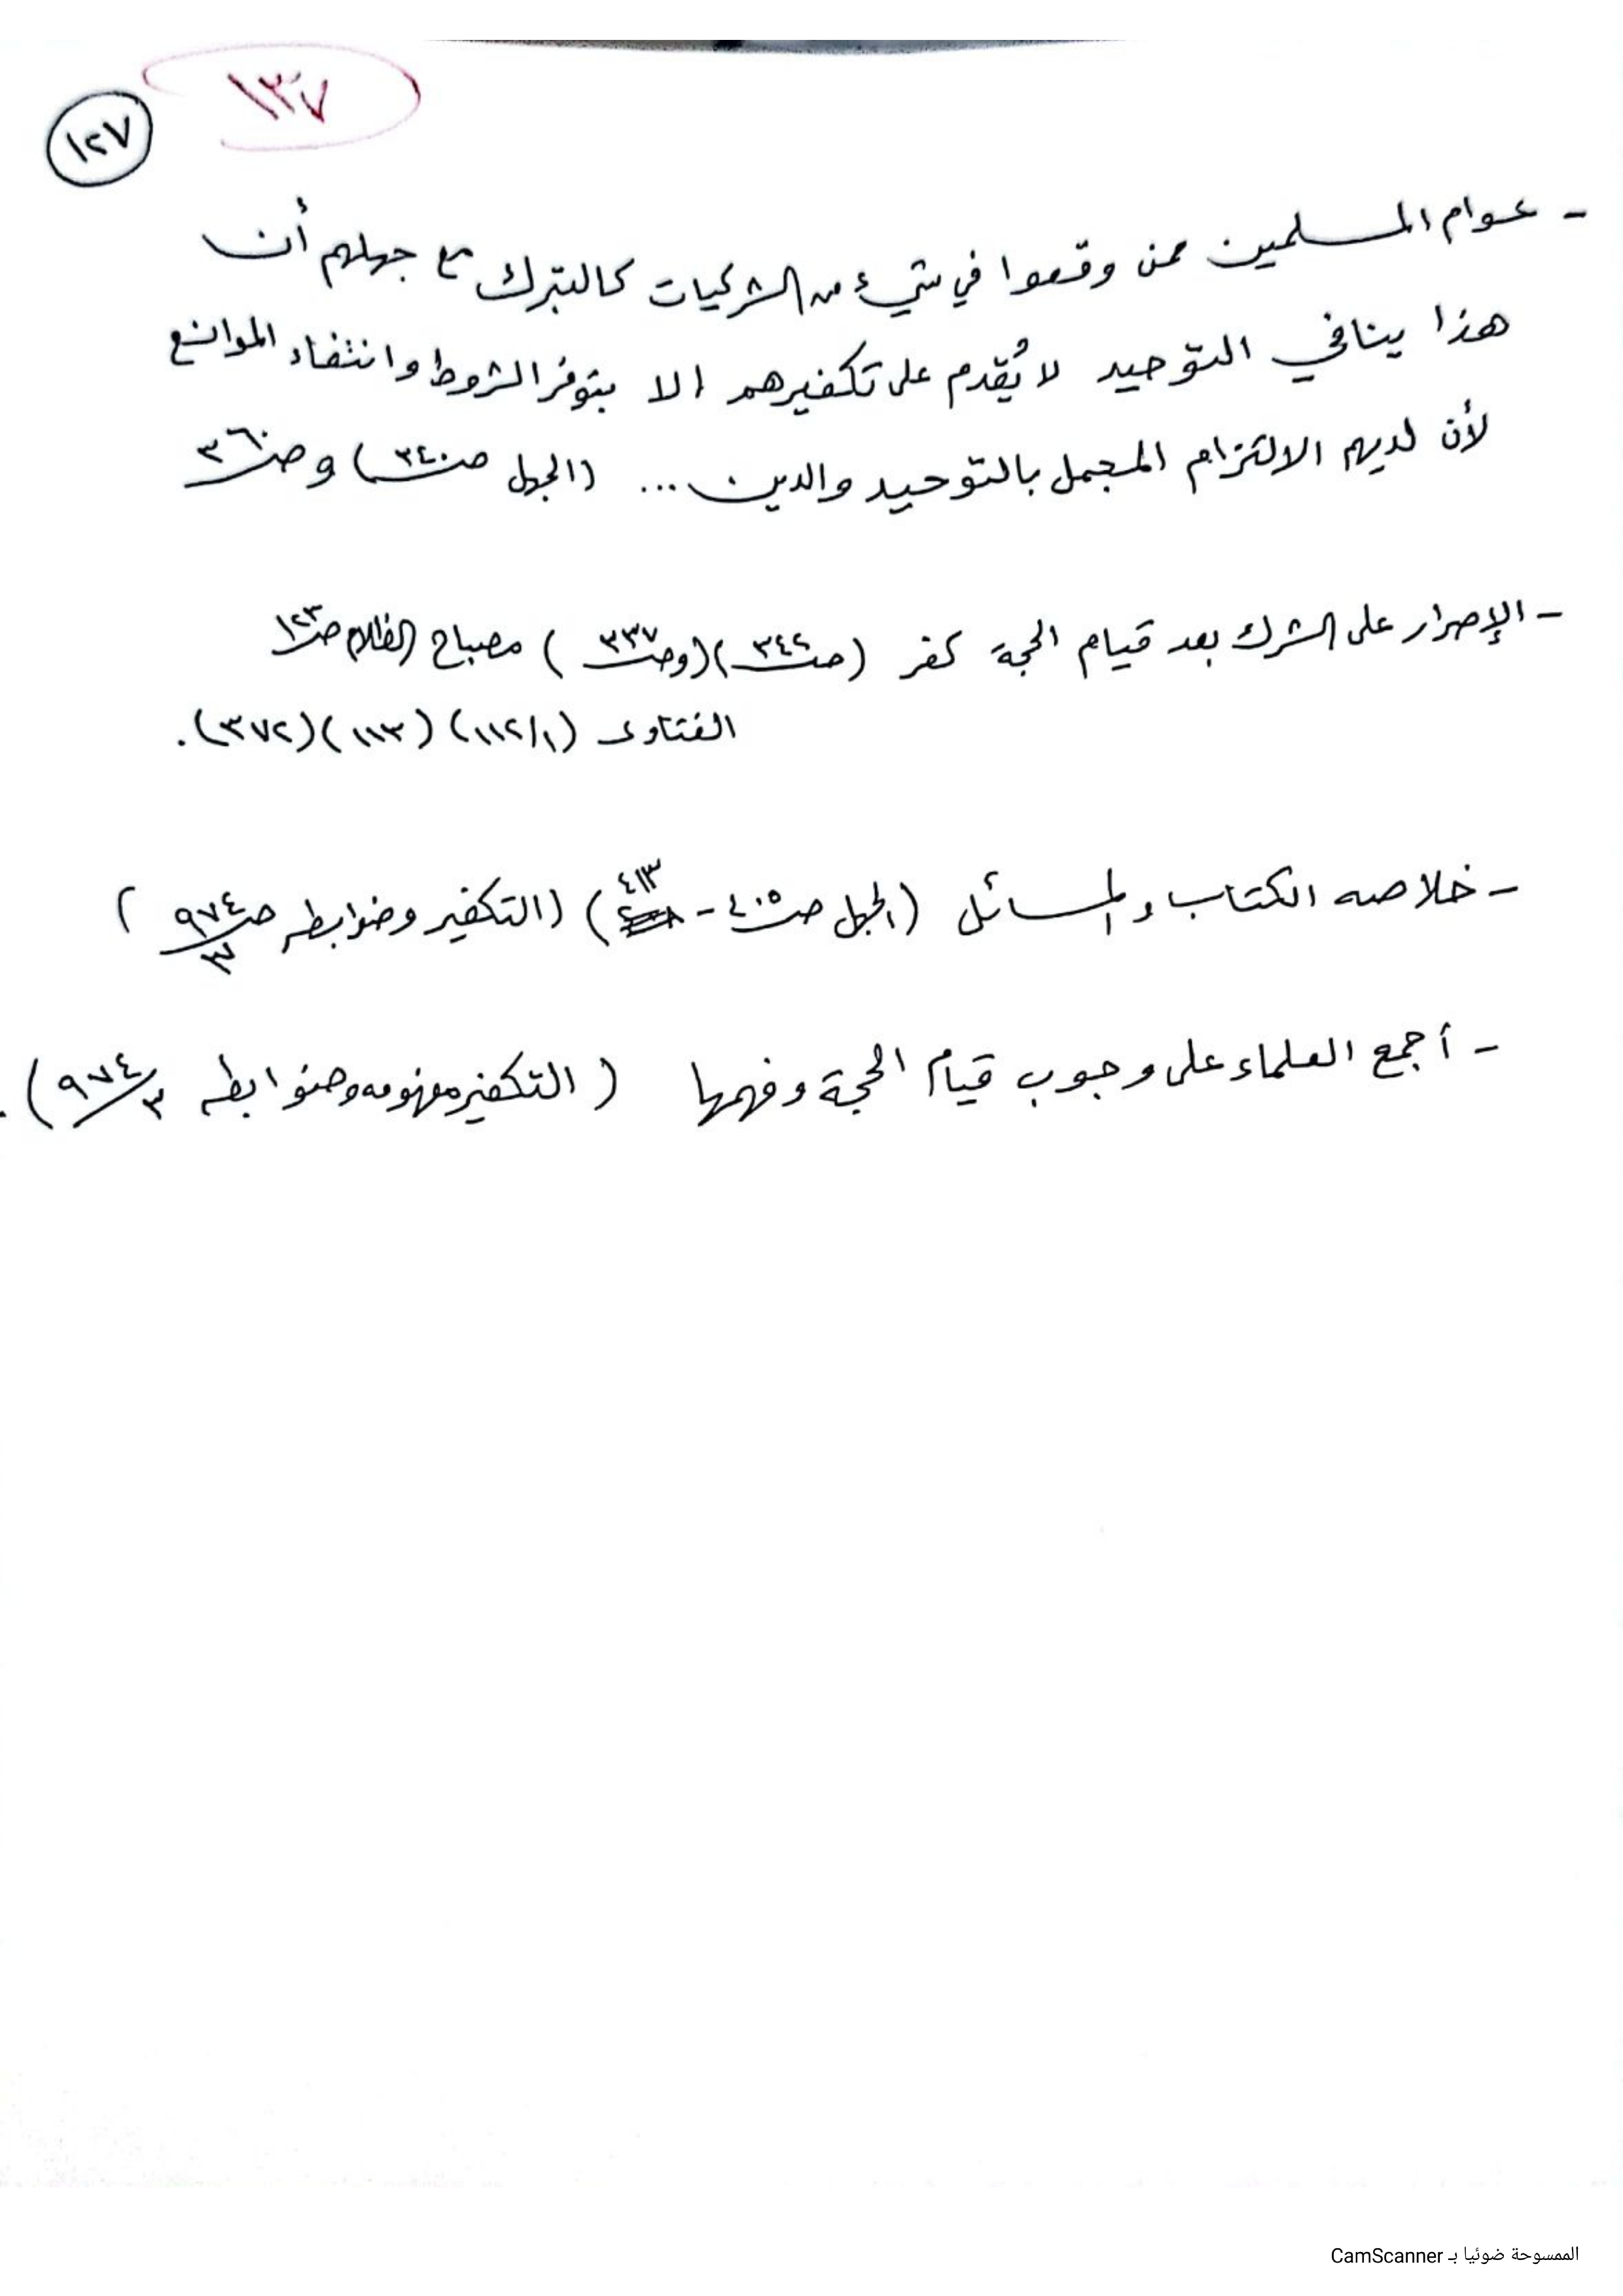 ١٣٧
١٢٧
- عوام المسلمين ممن وقعوا في شيء من الشركيات كالتبرك مع جهلهم أن
هذا ينافي التوحيد لا يُقدم على تكفيرهم إلا بتوفر الشروط وانتفاء الموانع
لأن لديهم الالتزام المجمل بالتوحيد والدين ... (الجهل ص٣٤٠) وص٣٦٠
- الإصرار على الشرك بعد قيام الحجة كفر (ص٣٤٢) (وص٣٣٧) مصباح الظلام ص١٢٣
الفتاوى (١١٢/١) (١١٣) (٣٧٢).
- خلاصه الكتاب والمسائل (الجهل ص٤٠٥ - ٤١٣) (التكفير وضوابطه ص٩٧٤/٣)
- أجمع العلماء على وجوب قيام الحجة وفهمها (التكفير مفهومه وضوابطه ٩٧٤/٣).
الممسوحة ضوئيا بـ CamScanner